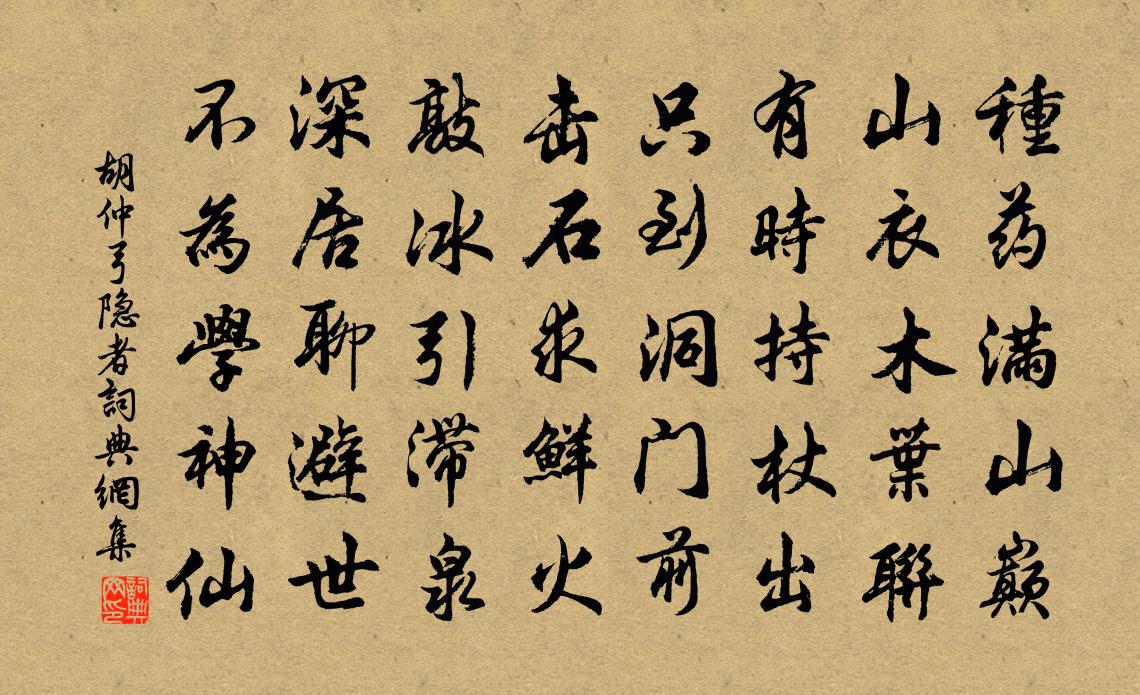 種药满山巅
山衣木葉聯
有時持杖出
只到洞门前
击石求鮮火
敲冰引滞泉
深居聊避世
不為學神仙
胡仲弓隐者詞典網集
詞典网印